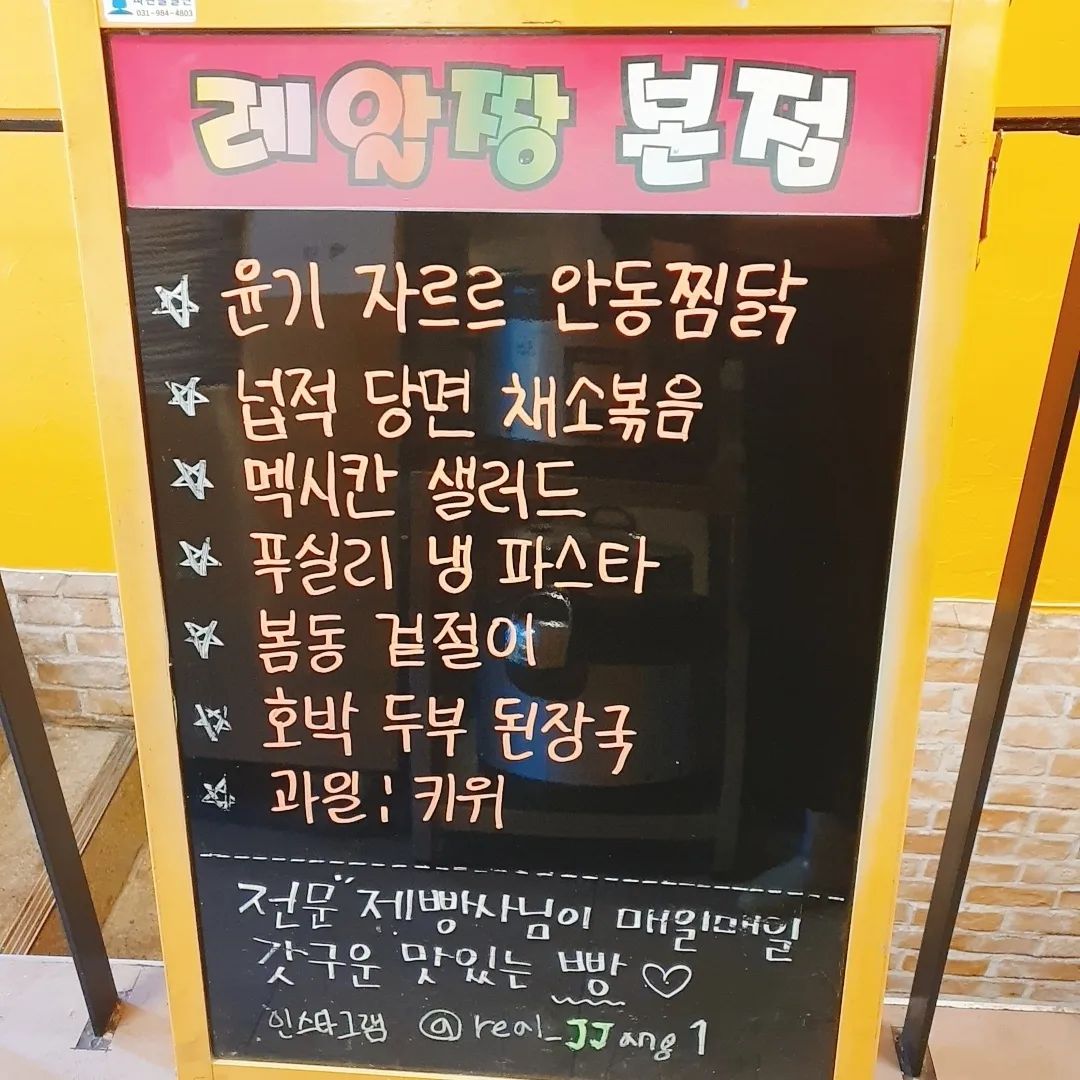 031-984-4803
레알짱 본점
윤기 자르르 안동찜닭
넙적 당면 채소볶음
멕시칸 샐러드
푸실리 냉 파스타
봄동 겉절이
호박 두부 된장국
과일 : 키위
전문 제빵사님이 매일매일
갓구운 맛있는 빵♡
인스타그램 @real_JJang1